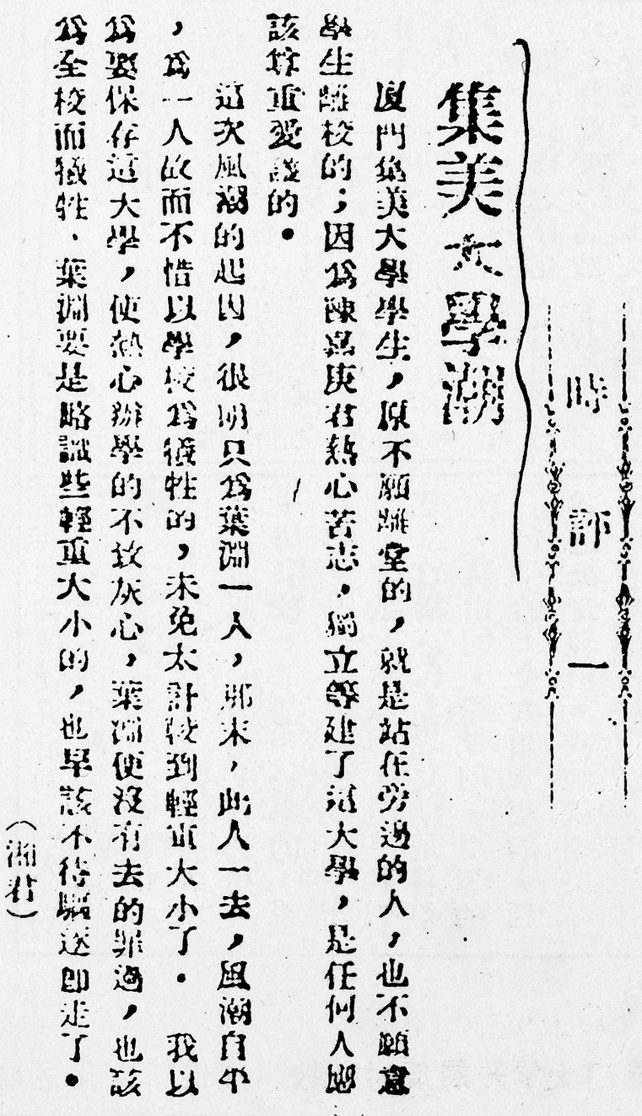 時評一
集美大學潮
廈門集美大學學生，原不願離堂的，就是站在旁邊的人，也不願意
學生離校的；因爲陳嘉庚君熱心苦志，獨立等建了這大學，是任何人應
該尊重愛護的。
這次風潮的起因，很明只爲葉淵一人，那末，此人一去，風潮自平
，爲一人故而不惜以學校爲犧牲的，未免太計較到輕重大小了。　我以
爲要保存這大學，使熱心辦學的不致灰心，葉淵便沒有去的罪過，也該
爲全校而犧牲．葉淵要是略識些輕重大小的，也早該不待驅逐即走了。
（湘君）